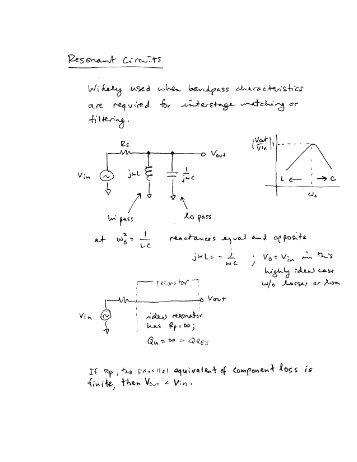 Resonant Circuits
Widely used when bandpass characteristics
are required for interstage matching or
filtering.
Rs
Vout
Vin
jωL
1/jωC
|Vout/Vin|
1
L ← → C
ω₀
hi pass
lo pass
at ω₀² = 1/LC reactances equal and opposite
jωL = - 1/ωC ; Vo = Vin in this
highly ideal case
w/o losses or load
resonator
Vout
Vin
ideal resonator
has Rp = ∞;
Qu = ∞ = QRES
If Rp, the parallel equivalent of component loss is
finite, then Vout < Vin.